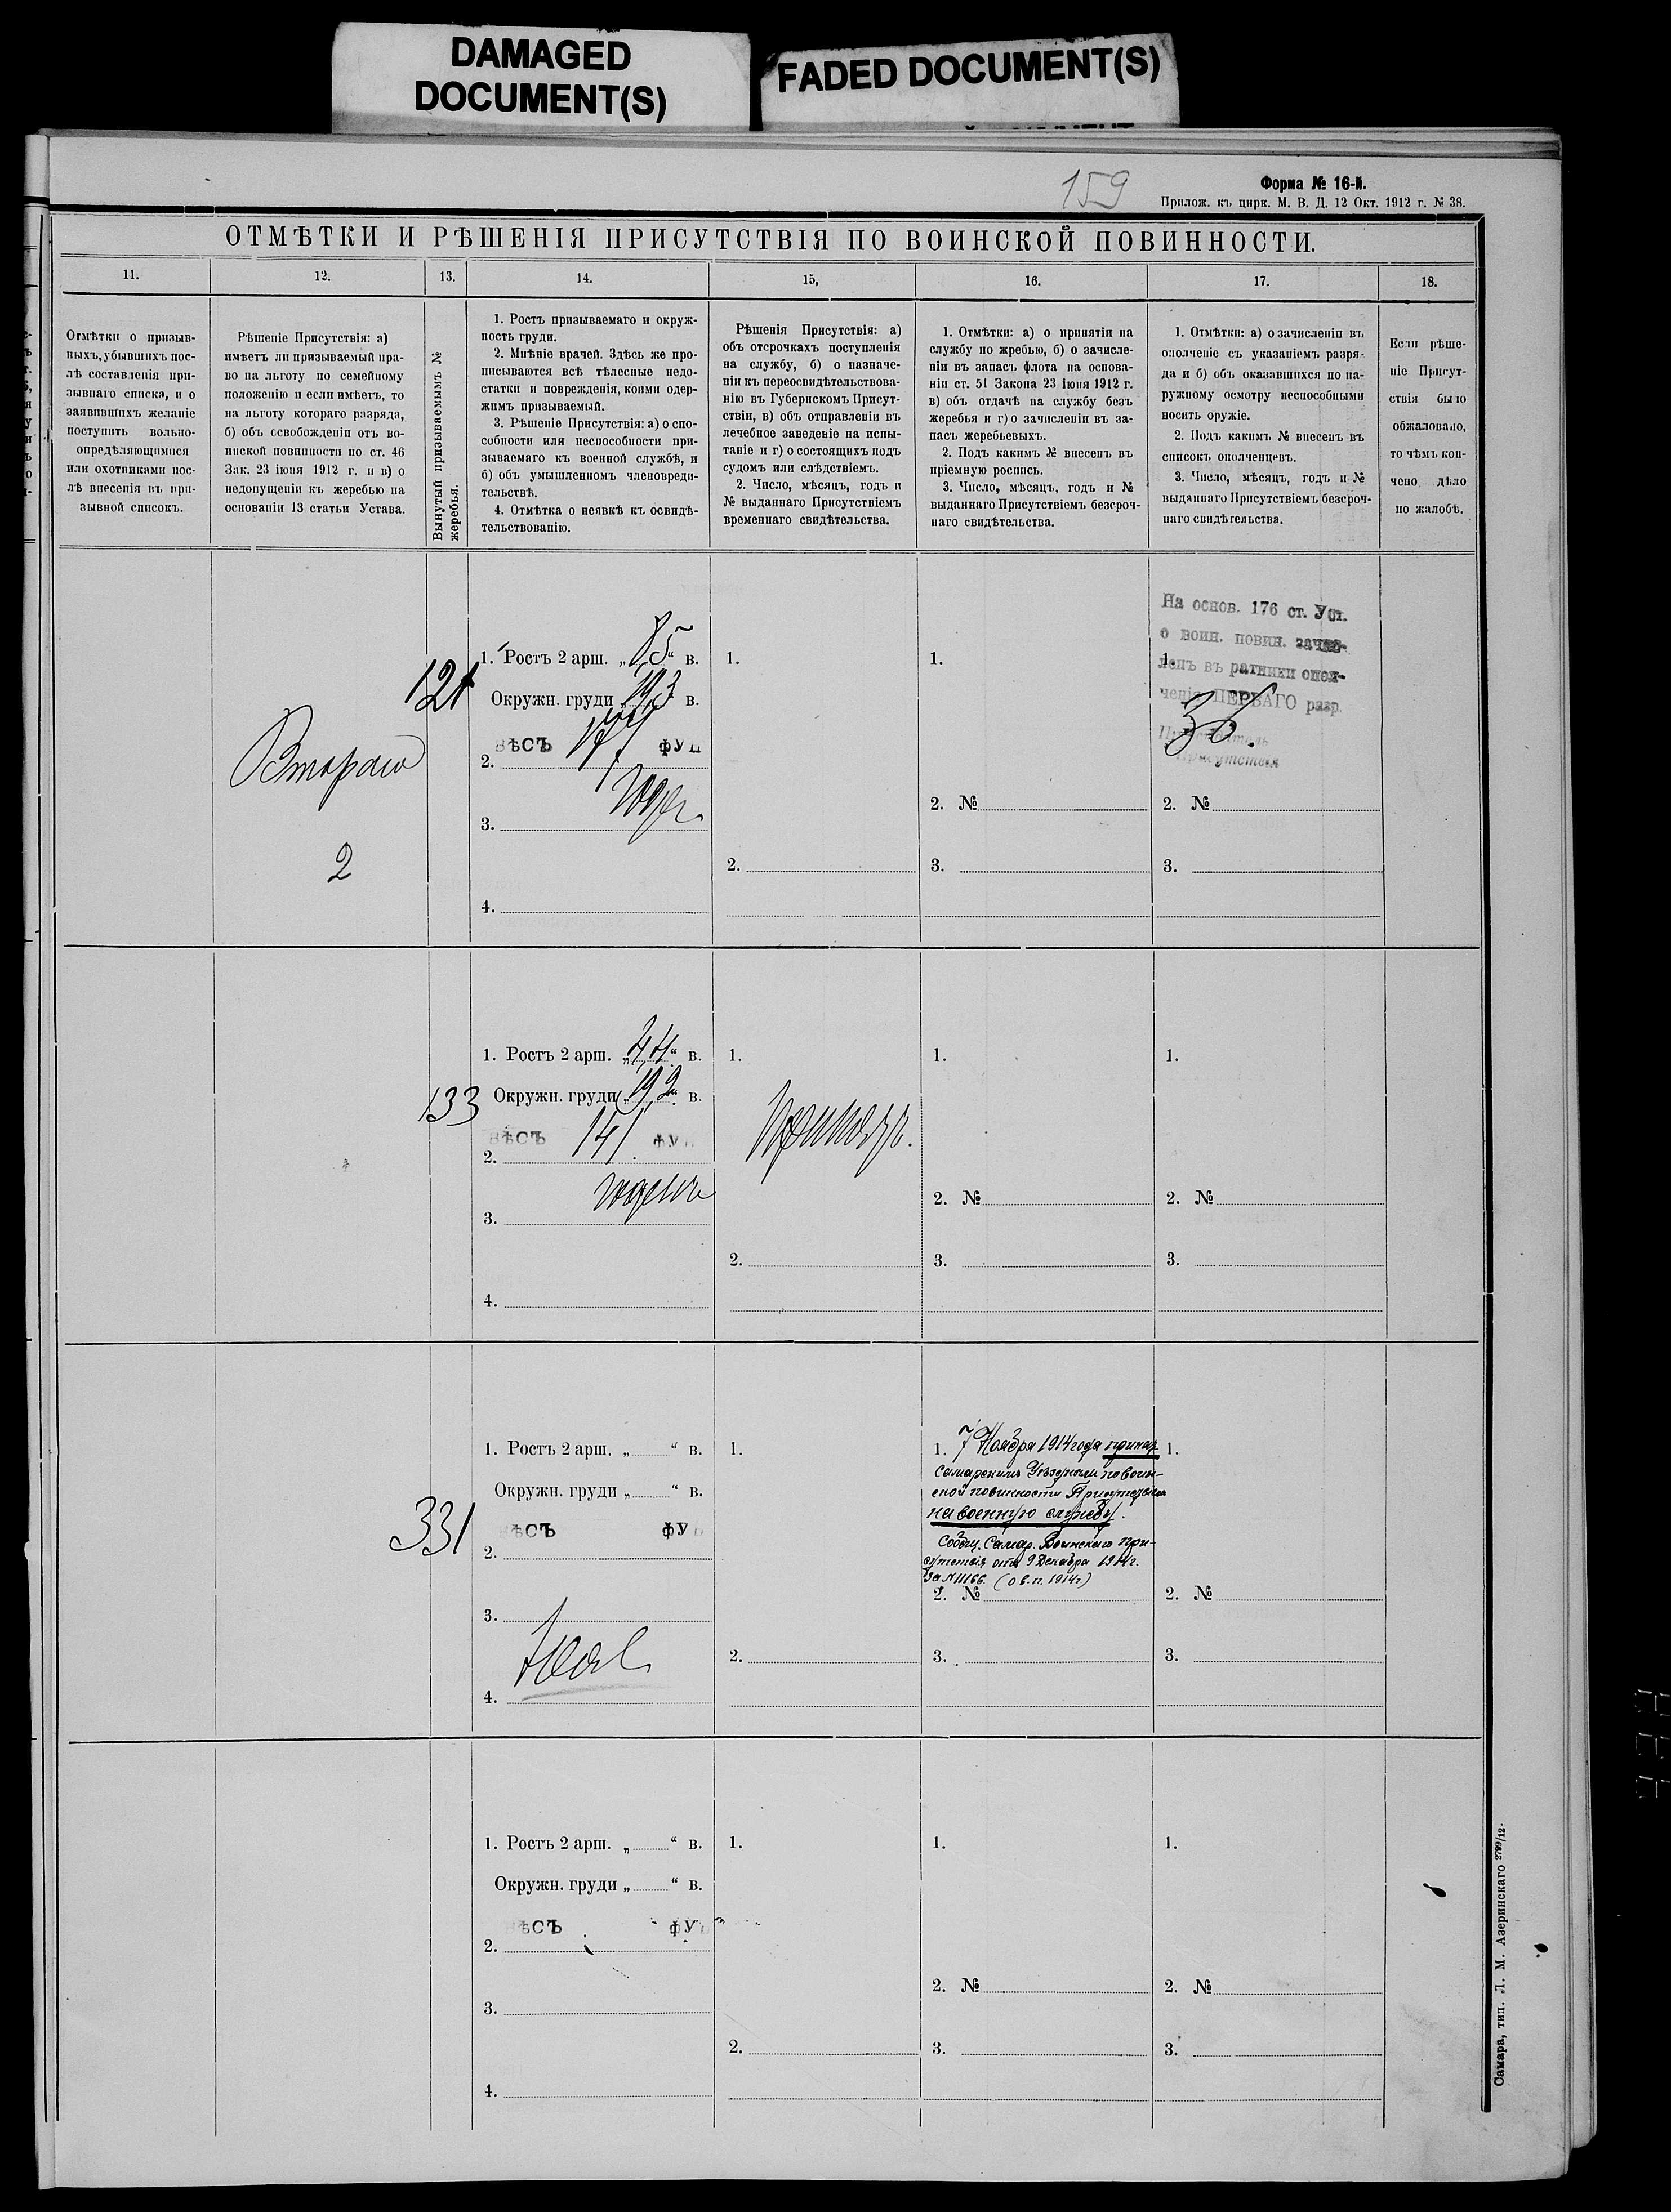 DAMAGED
DOCUMENT(S)
FADED DOCUMENT(S)
159
Форма № 16-й.
Прилож. къ цирк. М. В. Д. 12 Окт. 1912 г. № 38.
ОТМѢТКИ И РѢШЕНІЯ ПРИСУТСТВІЯ ПО ВОИНСКОЙ ПОВИННОСТИ.
11.
12.
13.
14.
15,
16.
17.
18.
Отмѣтки о призыв-
ныхъ, убывшихъ пос-
лѣ составленія при-
зывнаго списка, и о
заявившихъ желаніе
поступить вольно-
опредѣляющимися
или охотниками пос-
лѣ внесенія въ при-
зывной списокъ.
Рѣшеніе Присутствія: а)
имѣетъ ли призываемый пра-
во на льготу по семейному
положенію и если имѣетъ, то
на льготу котораго разряда,
б) объ освобожденіи отъ во-
инской повинности по ст. 46
Зак. 23 іюня 1912 г. и в) о
недопущеніи къ жеребью на
основаніи 13 статьи Устава.
Вынутый призываемымъ №
жеребья.
1. Ростъ призываемаго и окруж-
ность груди.
2. Мнѣніе врачей. Здѣсь же про-
писываются всѣ тѣлесные недо-
статки и поврежденія, коими одер-
жимъ призываемый.
3. Рѣшеніе Присутствія: а) о спо-
собности или неспособности при-
зываемаго къ военной службѣ, и
б) объ умышленномъ членовреди-
тельствѣ.
4. Отмѣтка о неявкѣ къ освидѣ-
тельствованію.
Рѣшенія Присутствія: а)
объ отсрочкахъ поступленія
на службу, б) о назначе-
ніи къ переосвидѣтельствова-
нію въ Губернскомъ Присут-
ствіи, в) объ отправленіи въ
лечебное заведеніе на испы-
таніе и г) о состоящихъ подъ
судомъ или слѣдствіемъ.
2. Число, мѣсяцъ, годъ и
№ выданнаго Присутствіемъ
временнаго свидѣтельства.
1. Отмѣтки: а) о принятіи на
службу по жребью, б) о зачисле-
ніи въ запасъ флота на основа-
ніи ст. 51 Закона 23 іюня 1912 г.
в) объ отдачѣ на службу безъ
жеребья и г) о зачисленіи въ за-
пасъ жеребьевыхъ.
2. Подъ какимъ № внесенъ въ
пріемную роспись.
3. Число, мѣсяцъ, годъ и №
выданнаго Присутствіемъ безсроч-
наго свидѣтельства.
1. Отмѣтки: а) о зачисленіи въ
ополченіе съ указаніемъ разря-
да и б) объ оказавшихся по на-
ружному осмотру неспособными
носить оружіе.
2. Подъ какимъ № внесенъ въ
списокъ ополченцевъ.
3. Число, мѣсяцъ, годъ и №
выданнаго Присутствіемъ безсроч-
наго свидѣтельства.
Если рѣше-
ніе Присут-
ствія было
обжаловано,
то чѣмъ кон-
чено дѣло
по жалобѣ.
Второго
2
121
1. Ростъ 2 арш. „ 85 “ в.
Окружн. груди „ 193 в.
ВѢСЪ 177 ФУН
2.
3. годен.
4.
1.
2.
1.
2. №
3.
На основ. 176 ст. Уст.
о воин. повин. зачис-
1.
ленъ въ ратники опол-
ченія ПЕРВАГО разр.
36.
Присутствія
2. №
3.
133
1. Ростъ 2 арш. „ 44 “ в.
Окружн. груди „ 192 “ в.
ВѢСЪ 141 ФУН
2.
годенъ
3.
4.
1.
2.
1.
2. №
3.
1.
2. №
3.
331
1. Ростъ 2 арш. „ “ в.
Окружн. груди „ “ в.
ВѢСЪ ФУН
2.
3.
4.
1.
2.
1. 7 Ноября 1914 года принят
Самарскимъ Уѣзднымъ по воин-
ской повинности Присутствіем
на военную службу.
Сообщ. Самар. Воинскаго При-
сутствія отъ 9 Декабря 1914 г.
За № 11166. (о в. п. 1914 г.)
2. №
3.
1.
2. №
3.
1. Ростъ 2 арш. „ “ в.
Окружн. груди „ “ в.
ВѢСЪ ФУН
2.
3.
4.
1.
2.
1.
2. №
3.
1.
2. №
3.
Самара, тип. Л. М. Азеринскаго 2799/12.